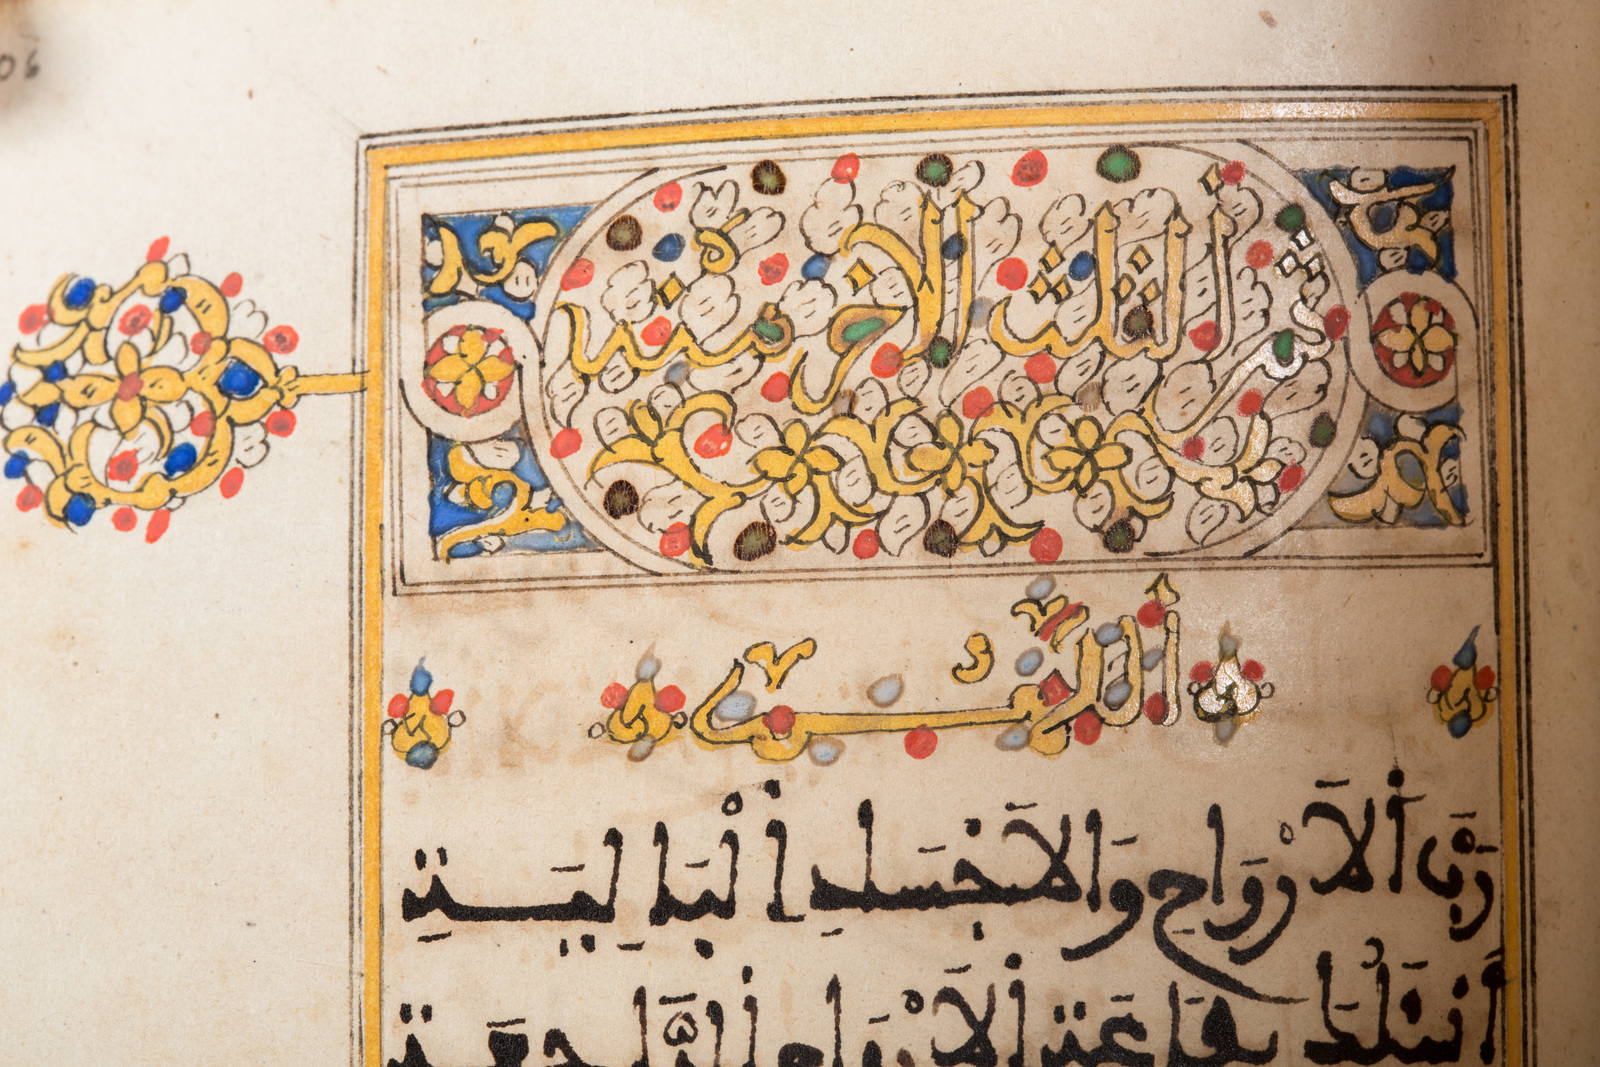 الثلث الاخير
اللهم
رَبَّ الْأَرْوَاحِ وَالْأَجْسَادِ الْبَالِيَةِ
أَسْأَلُكَ بِطَاعَةِ الْأَرْوَاحِ الرَّاجِعَةِ